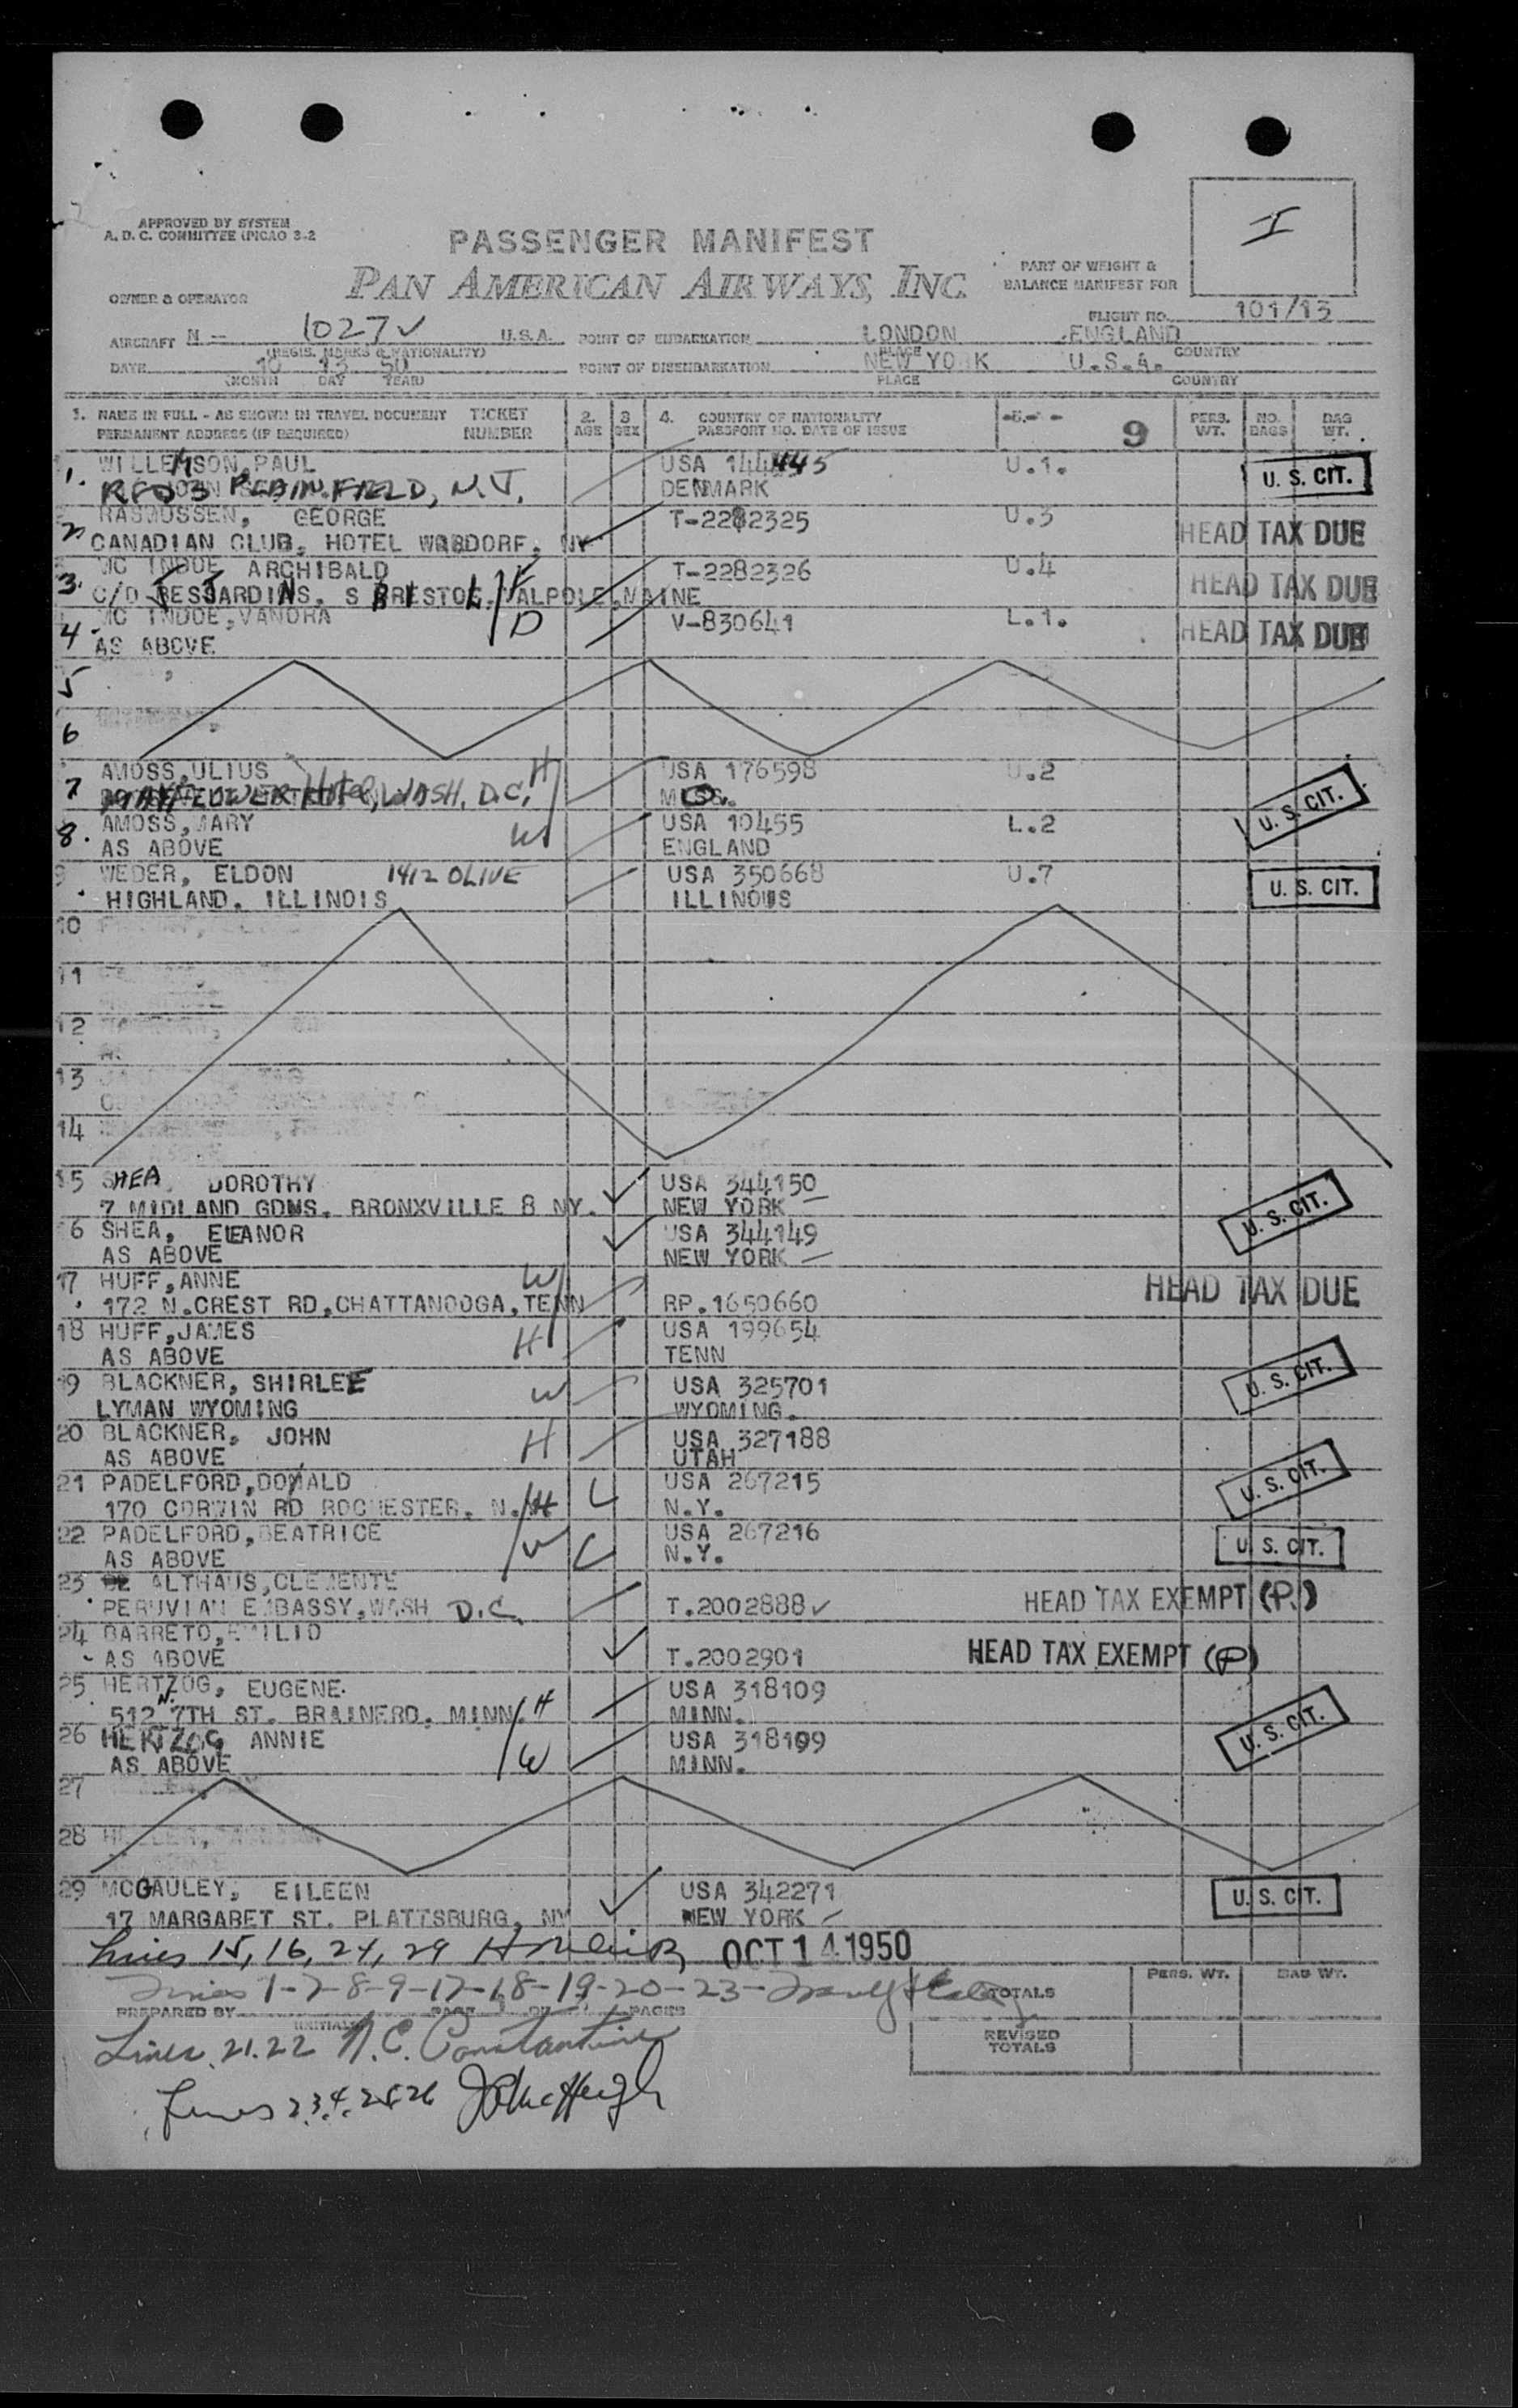 APPROVED BY SYSTEM
A. D. C. COMMITTEE (PICAO 3-2
PASSENGER MANIFEST
PAN AMERICAN AIRWAYS, INC.
I
PART OF WEIGHT &
BALANCE MANIFEST FOR
OWNER & OPERATOR
FLIGHT NO. 101/13
AIRCRAFT N - 1027V U.S.A. POINT OF EMBARKATION LONDON ENGLAND
(REGIS. MARKS & NATIONALITY) PLACE COUNTRY
DATE 10 13 50 POINT OF DISEMBARKATION NEW YORK U.S.A.
(MONTH DAY YEAR) PLACE COUNTRY
1. NAME IN FULL - AS SHOWN IN TRAVEL DOCUMENT TICKET 2. 3 4. COUNTRY OF NATIONALITY -5.- PERS. NO. BAG
PERMANENT ADDRESS (IF REQUIRED) NUMBER AGE SEX PASSPORT NO. DATE OF ISSUE 9 WT. BAGS WT.
1. WILLEMSON, PAUL USA 144445 U.1. U. S. CIT.
RFD 3 PLAINFIELD, N.J. DENMARK
2 RASMUSSEN, GEORGE T-2282325 U.3 HEAD TAX DUE
CANADIAN CLUB, HOTEL WALDORF, NY
3. MC INDOE ARCHIBALD T-2282326 U.4 HEAD TAX DUE
C/O DESJARDINS. S BRISTOL, WALPOLE, MAINE
4. MC INDOE, VANORA D V-830641 L.1. HEAD TAX DUE
AS ABOVE
5
6
7 AMOSS, ULIUS H USA 176598 U.2
MAYFLOWER Hotel, WASH. D.C. MO. U. S. CIT.
8. AMOSS, MARY W USA 10455 L.2
AS ABOVE ENGLAND
9 WEDER, ELDON 1412 OLIVE USA 350668 U.7 U. S. CIT.
HIGHLAND. ILLINOIS ILLINOIS
10
11
12
13
14
15 SHEA, DOROTHY USA 344150
7 MIDLAND GDNS. BRONXVILLE 8 NY. NEW YORK U. S. CIT.
16 SHEA, ELEANOR USA 344149
AS ABOVE NEW YORK
17 HUFF, ANNE W HEAD TAX DUE
172 N.CREST RD, CHATTANOOGA, TENN RP.1650660
18 HUFF, JAMES H USA 199654
AS ABOVE TENN U. S. CIT.
19 BLACKNER, SHIRLEE W USA 325701
LYMAN WYOMING WYOMING.
20 BLACKNER, JOHN H USA 327188
AS ABOVE UTAH
21 PADELFORD, DONALD USA 267215 U. S. CIT.
170 CORWIN RD ROCHESTER, N. H N.Y.
22 PADELFORD, BEATRICE W USA 267216 U. S. CIT.
AS ABOVE N.Y.
23 DE ALTHAUS, CLEMENTE
PERUVIAN EMBASSY, WASH D.C. T.2002888 HEAD TAX EXEMPT (P.)
24 BARRETO, EMILIO
AS ABOVE T.2002901 HEAD TAX EXEMPT (P)
25 HERTZOG, EUGENE. USA 318109
512 N. 7TH ST. BRAINERD, MINN. H MINN.
26 HERTZOG ANNIE W USA 318109 U. S. CIT.
AS ABOVE MINN.
27
28
29 MCGAULEY, EILEEN USA 342271 U. S. CIT.
17 MARGARET ST. PLATTSBURG, NY NEW YORK
Lines 15, 16, 24, 29 OCT 14 1950
Lines 1-7-8-9-17-18-19-20-23- TOTALS PERS. WT. BAG WT.
PREPARED BY PAGE 1 OF PAGES
(INITIAL) REVISED
TOTALS
Lines. 21.22 N. C. Constantine
Lines 2.3.4. 25 26